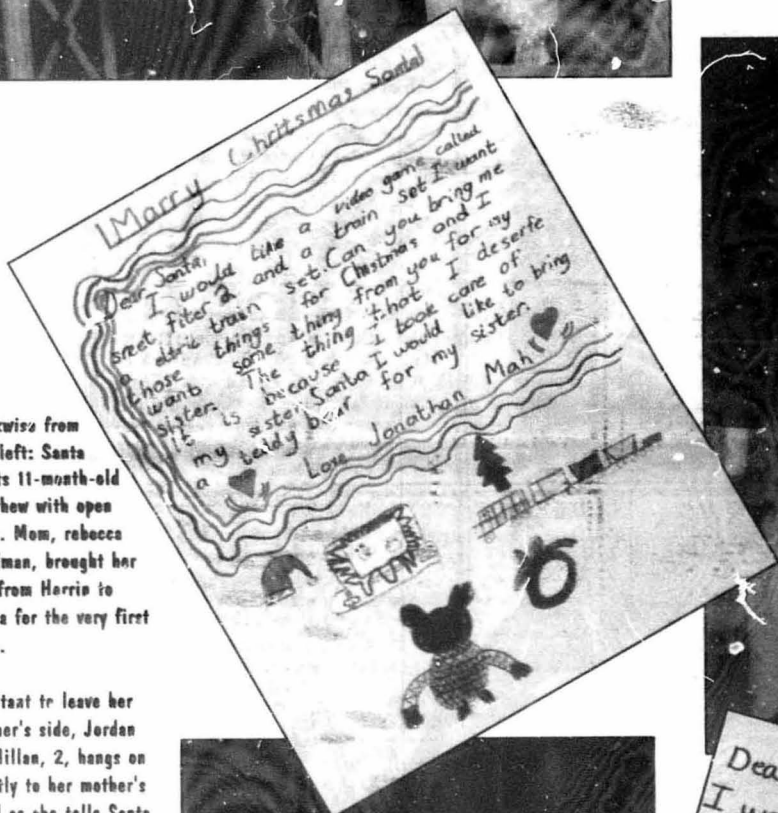 Marry Chritsmas Santa!
Dear Santa,
I would like a video game called
sreet fiter 2 and a train set I want
a eltric train set. Can you bring me
those things for Chistmas and I
want some thing from you for my
sister. The thing that I deserfe
it is because I took care of
my sister Santa I would like to bring
a teddy bear for my sister.
Love Jonathan Mah
left: Santa
11-month-old
with open
Mom, rebecca
man, brought her
from Herrin to
for the very first
to leave her
side, Jordan
millan, 2, hangs on
to her mother's
as she tells Santa
Dea
I w